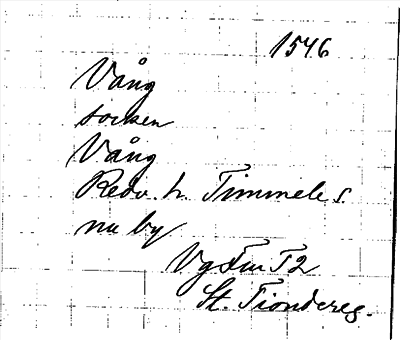 1546
Vång
socken
Vång
Redv. h. Timmele s.
nu by
Vg Fru T2
St. Tiondereg.